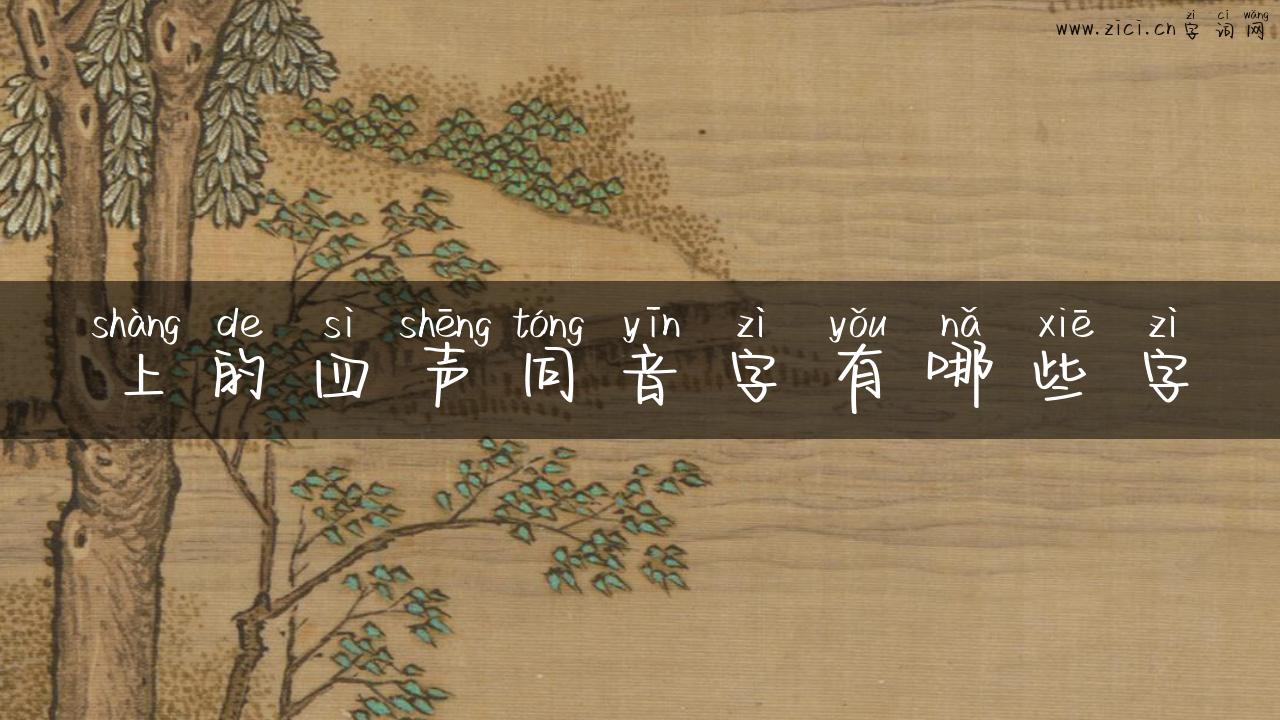 zì cí wǎng
www.zici.cn 字词网
shàng de sì shēng tóng yīn zì yǒu nǎ xiē zì
上的四声同音字有哪些字